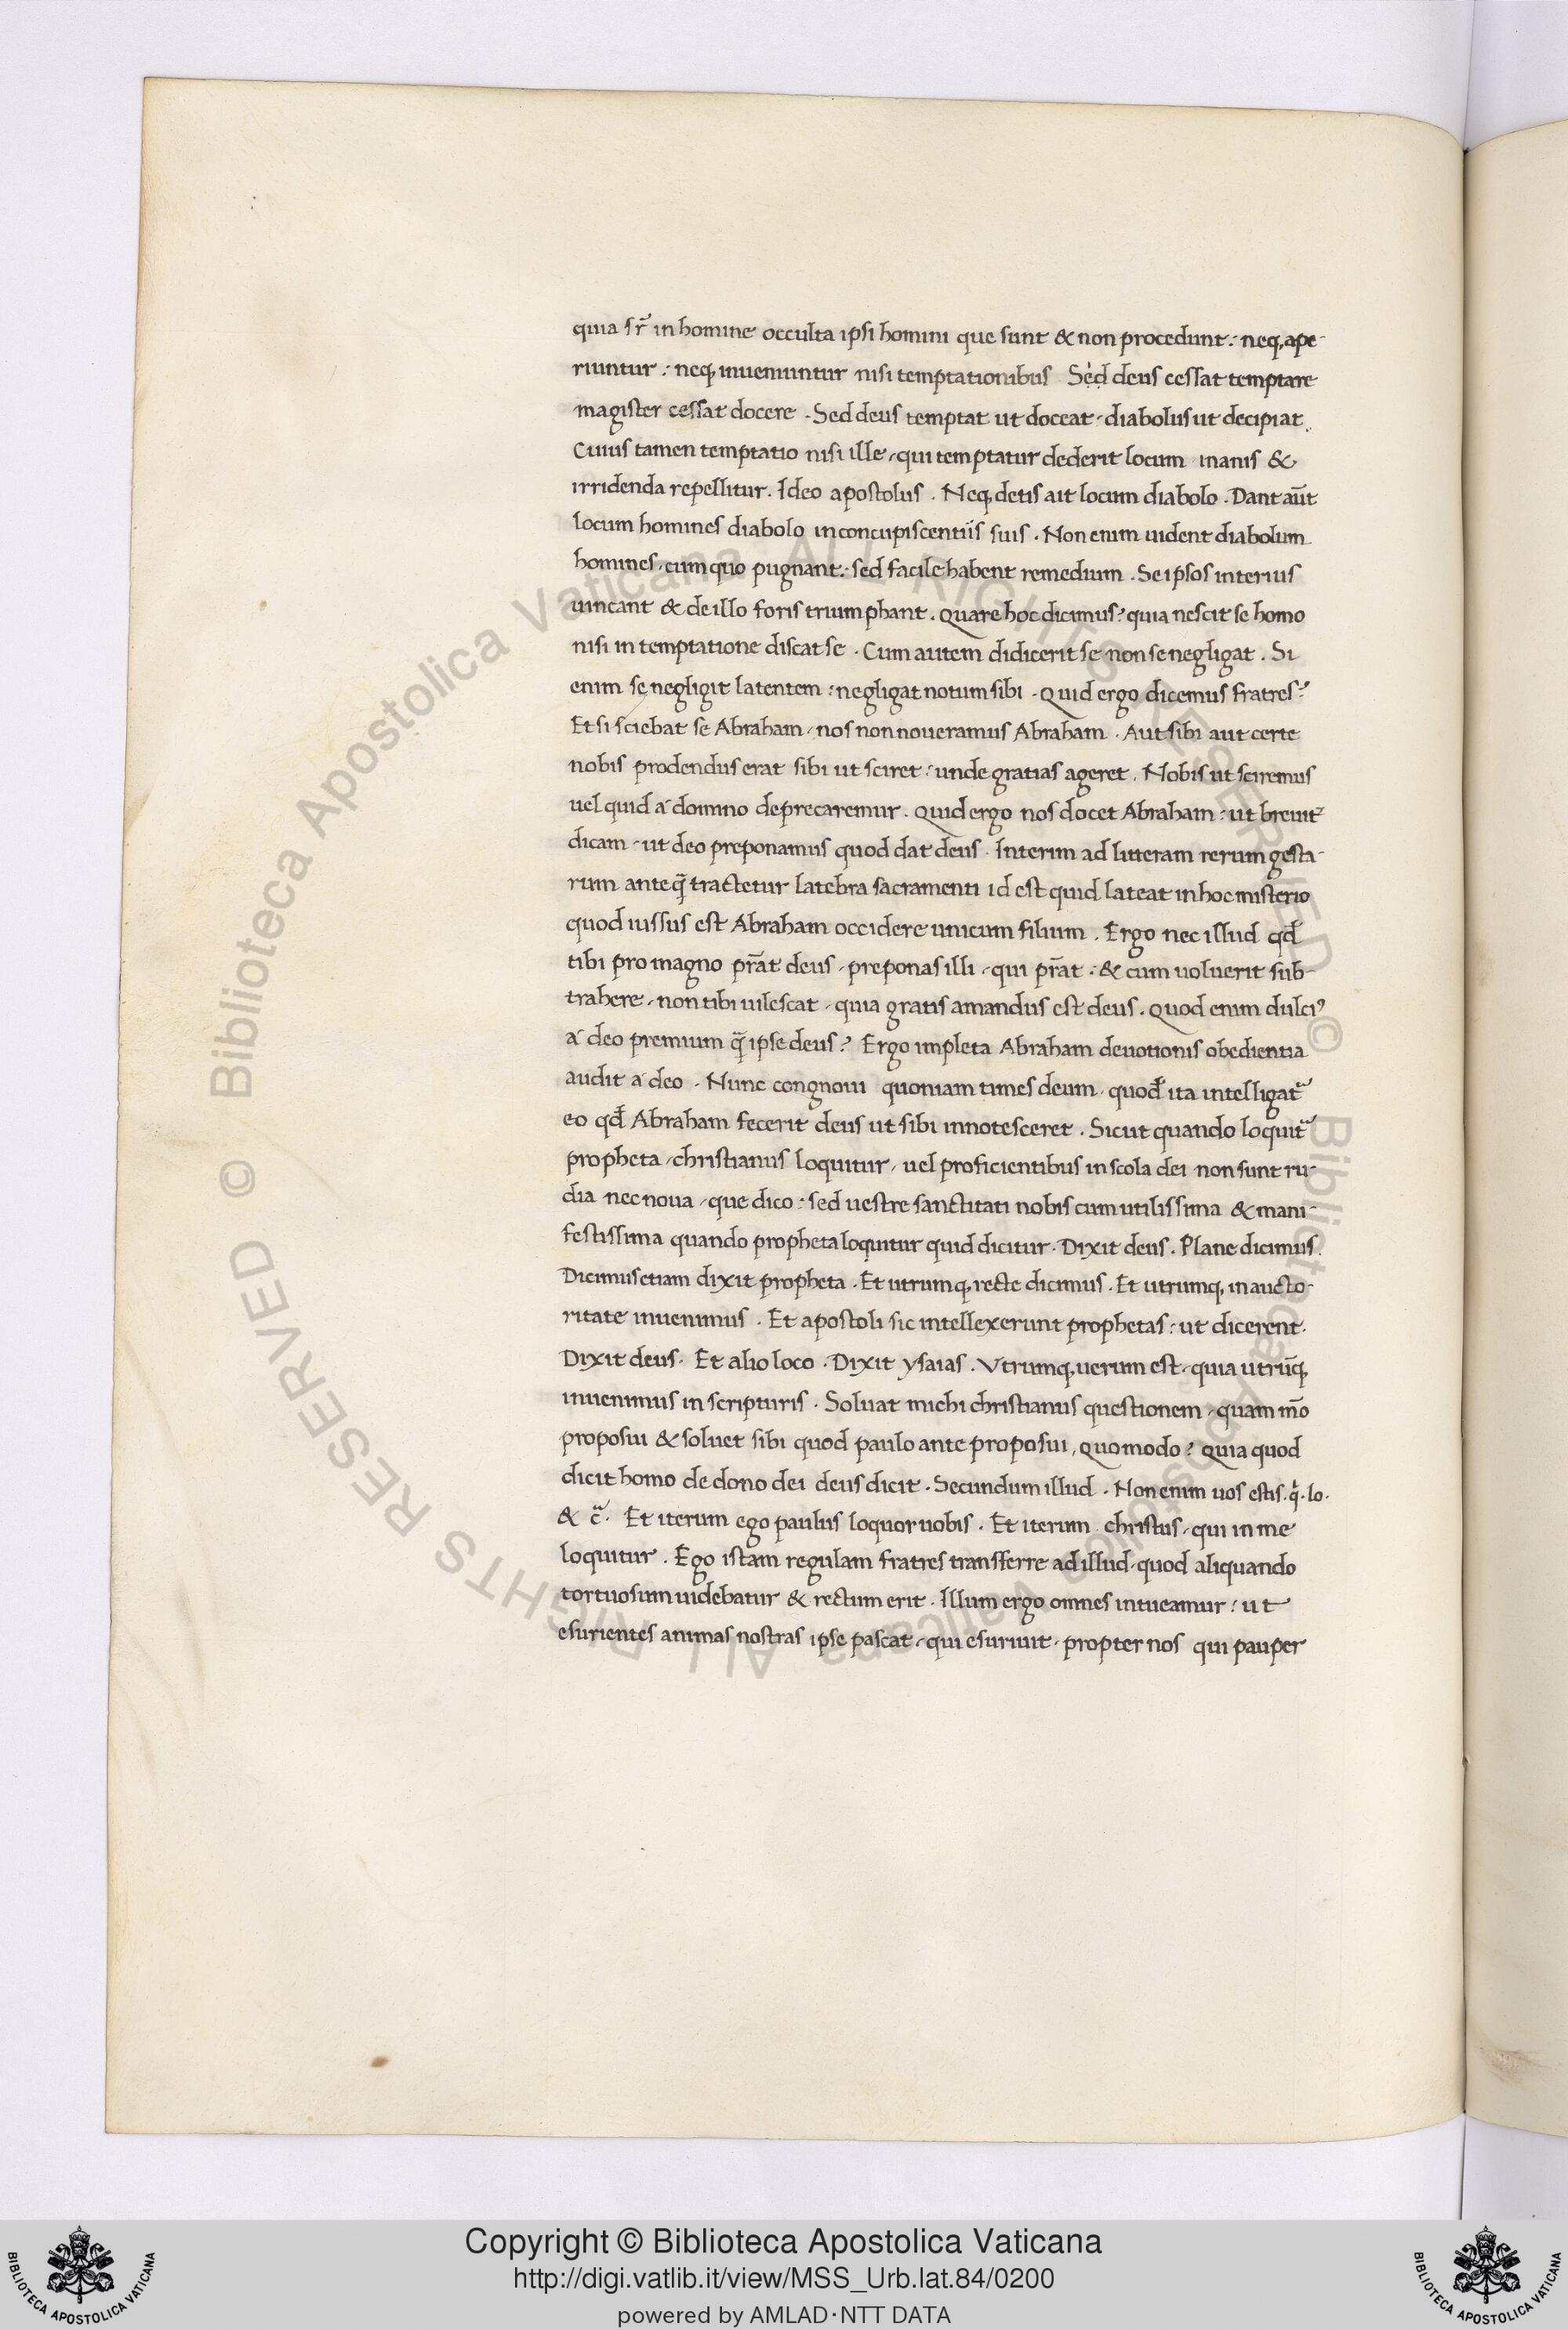 quia sr̃ in homine occulta ipsi homini que sunt & non procedunt: neq, ape-
riuntur: neq, inueniuntur nisi temptationibus Sed deus cessat temptare
magister cessat docere. Sed deus temptat ut doceat diabolus ut decipiat.
Cuius tamen temptatio nisi ille, qui temptatur dederit locum inanis &
irridenda repellitur. Ideo apostolus. Neq, detis ait locum diabolo. Dant aūt
locum homines diabolo in concupiscentiis suis. Non enim uident diabolum
homines, cum quo pugnant: sed facile habent remedium. Se ipsos interius
uincant & de illo foris triumphant. Quare hoc dicimus? quia nescit se homo
nisi in temptatione discat se. Cum autem didicerit se non se negligat. Si
enim se negligit latentem: negligat notum sibi. Quid ergo dicemus fratres?
Et si sciebat se Abraham, nos non noueramus Abraham. Aut sibi aut certe
nobis prodendus erat sibi ut sciret: unde gratias ageret. Nobis ut sciremus
uel quid á domino deprecaremur. Quid ergo nos docet Abraham: ut breuit᷑
dicam, ut deo preponamus quod dat deus. Interim ad litteram rerum gesta-
rum anteq̄ tractetur latebra sacramenti id est quid lateat in hoc misterio
quod iussus est Abraham occidere unicum filium. Ergo nec illud qđ
tibi pro magno pr̄at deus, preponas illi, qui pr̄at: & cum uoluerit sub-
trahere, non tibi uilescat, quia gratis amandus est deus. Quod enim dulciꝰ
á deo premium q̄ ipse deus? Ergo impleta Abraham deuotionis obedientia
audit á deo. Nunc congnoui quoniam times deum, quođ ita intelligat᷑
eo qđ Abraham fecerit deus ut sibi innotesceret. Sicut quando loquit᷑
propheta, christianus loquitur, uel proficientibus in scola dei non sunt ru-
dia nec noua, que dico: sed uestre sanctitati nobiscum utilissima & mani-
festissima quando propheta loquitur quid dicitur. Dixit deus. Plane dicimus.
Dicimus etiam dixit propheta. Et utrumq, recte dicimus. Et utrumq, in aucto-
ritate inuenimus. Et apostoli sic intellexerunt prophetas: ut dicerent.
Dixit deus. Et alio loco. Dixit ysaias. Vtrumq, uerum est, quia utrūq,
inuenimus in scripturis. Soluat michi christianus questionem, quam m̄o
proposui & soluet sibi quod paulo ante proposui, quomodo? Quia quod
dicit homo de dono dei deus dicit. Secundum illud. Non enim uos estis. q̇. lo.
& c᷑. Et iterum ego paulus loquor uobis. Et iterum christus, qui in me
loquitur. Ego istam regulam fratres transferre ad illud, quod aliquando
tortuosum uidebatur & rectum erit. Illum ergo omnes intueamur: ut
esurientes animas nostras ipse pascat, qui esuriuit, propter nos qui pauper
© Biblioteca Apostolica Vaticana ALL RIGHTS RESERVED © Biblioteca Apostolica Vaticana ALL RIGHTS RESERVED
Copyright © Biblioteca Apostolica Vaticana
http://digi.vatlib.it/view/MSS_Urb.lat.84/0200
powered by AMLAD·NTT DATA
BIBLIOTECA APOSTOLICA VATICANA
BIBLIOTECA APOSTOLICA VATICANA